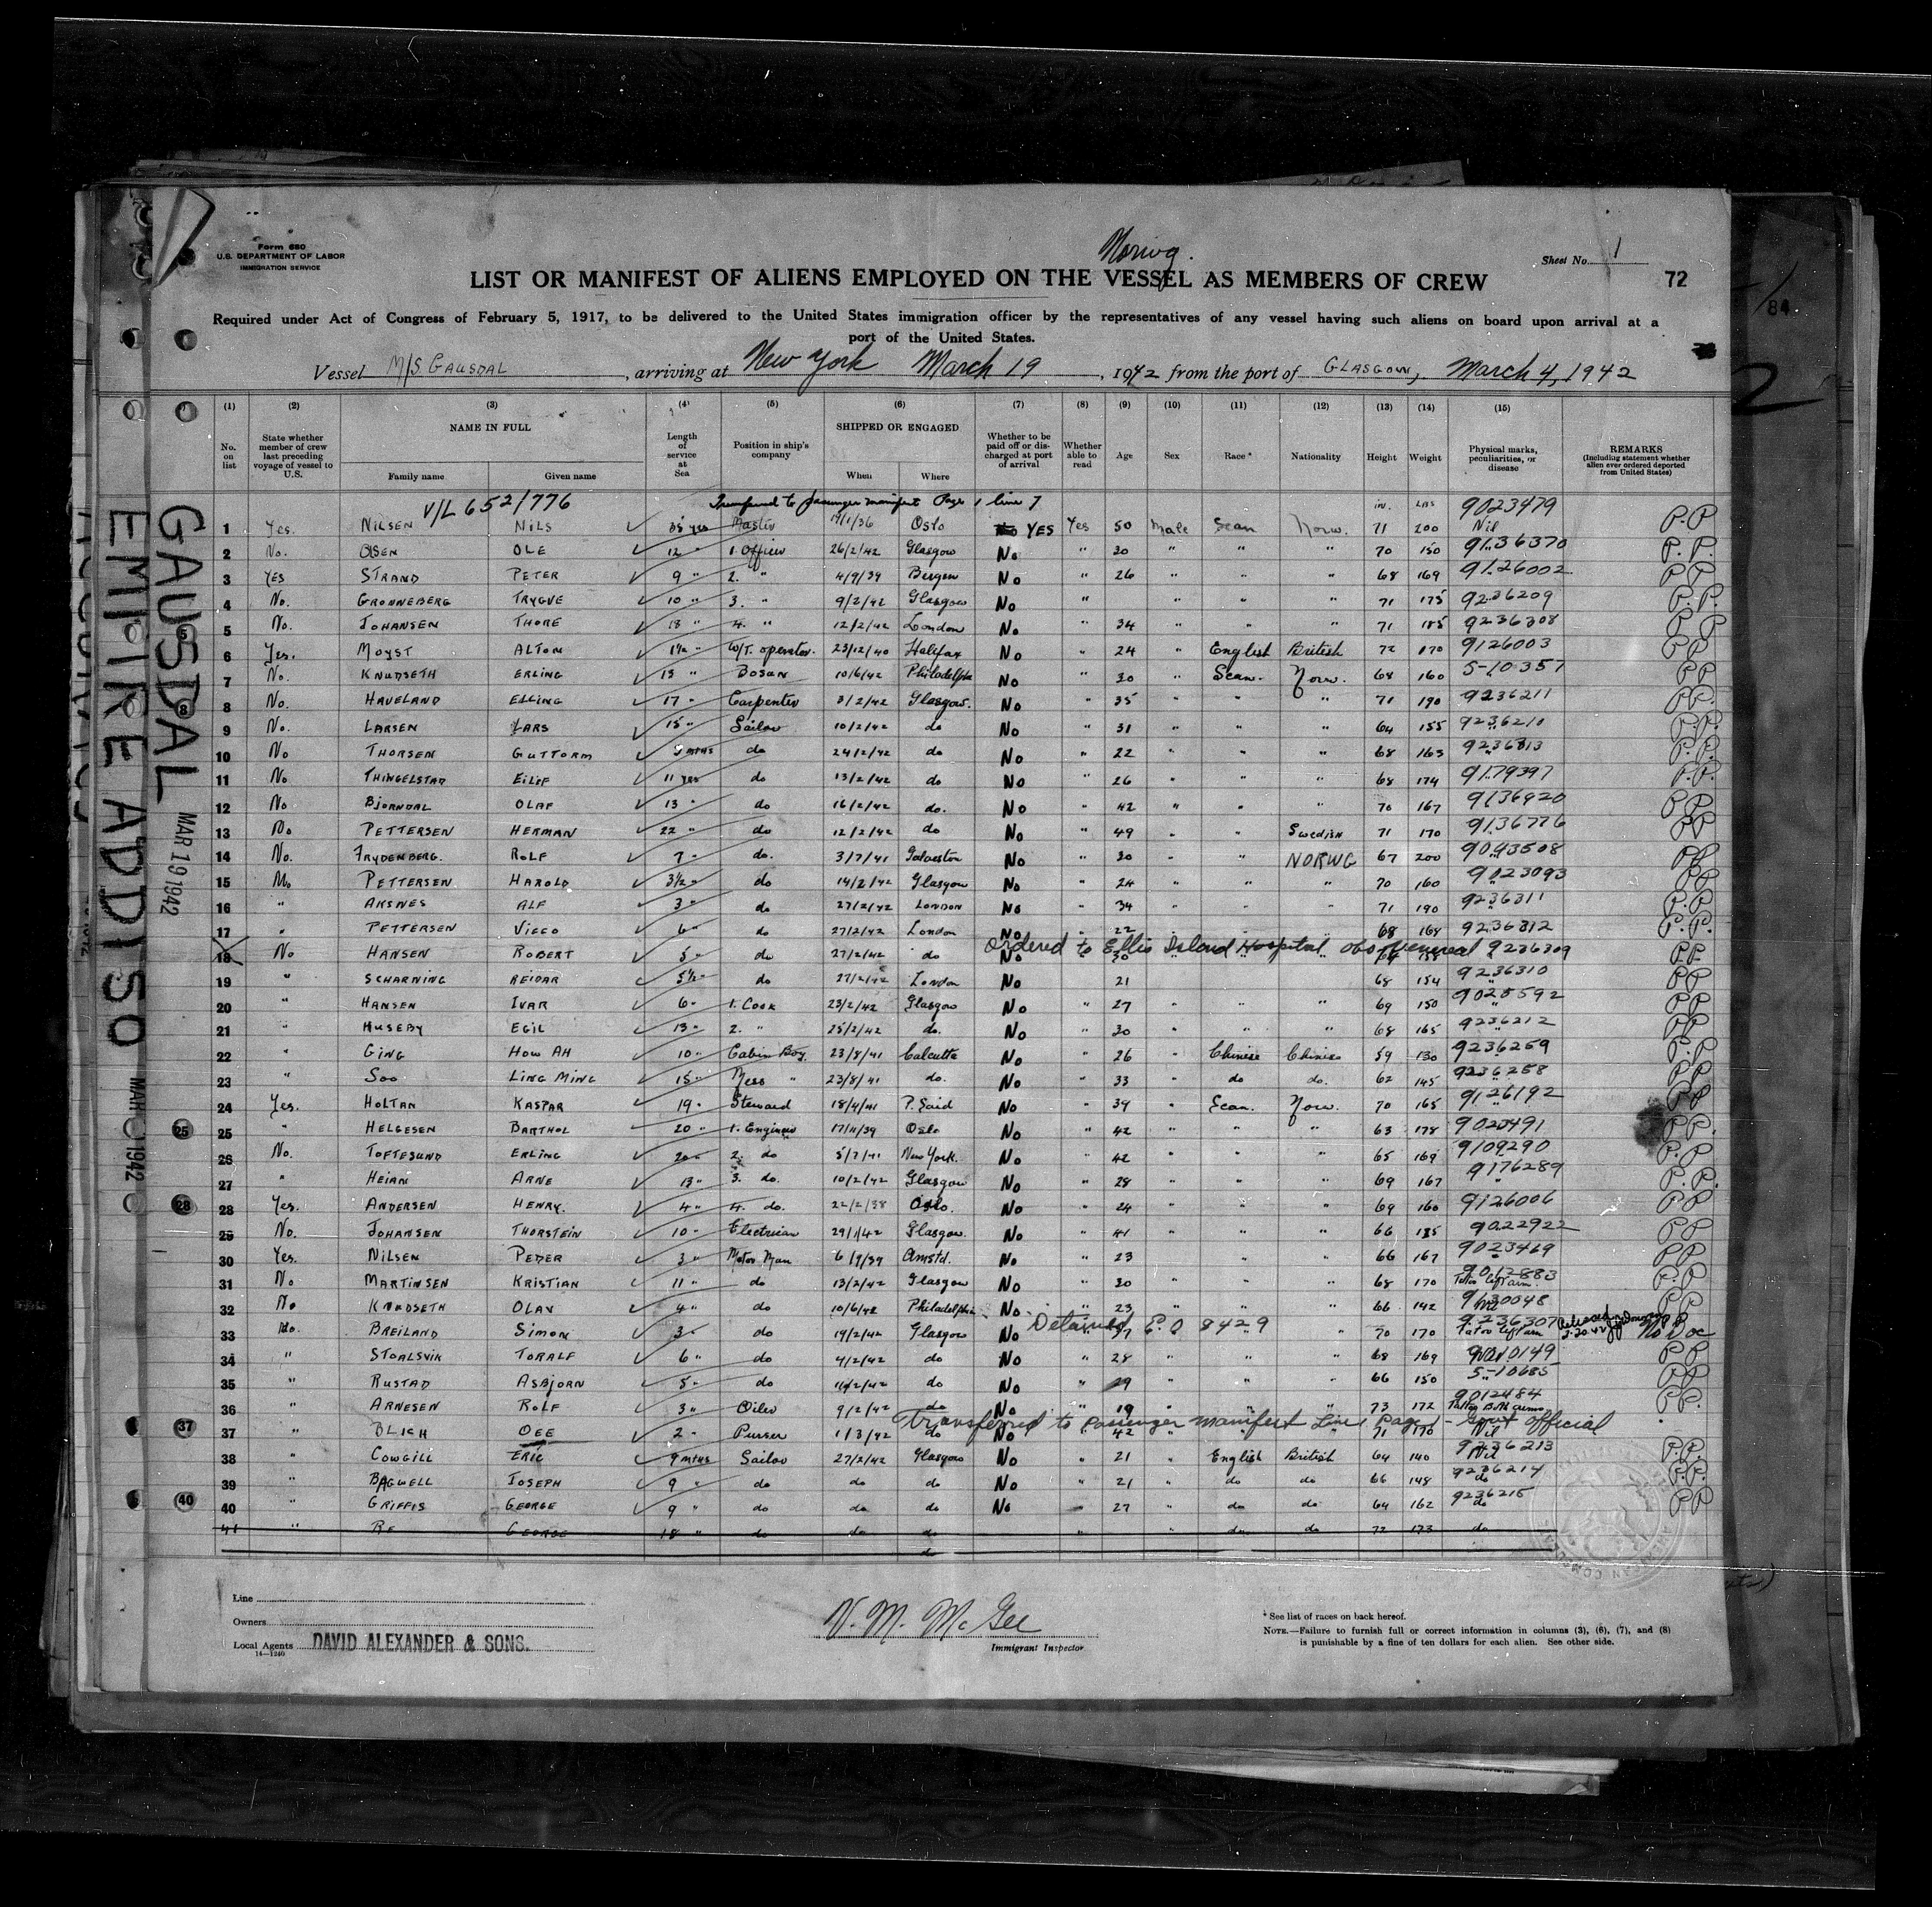 Form 680
U.S. DEPARTMENT OF LABOR
IMMIGRATION SERVICE
Norwg.
Sheet No. 1
LIST OR MANIFEST OF ALIENS EMPLOYED ON THE VESSEL AS MEMBERS OF CREW
72
Required under Act of Congress of February 5, 1917, to be delivered to the United States immigration officer by the representatives of any vessel having such aliens on board upon arrival at a
port of the United States.
84
Vessel M/S GAUSDAL, arriving at New York March 19, 1942 from the port of GLASGOW, March 4, 1942
2
(1) (2) (3) (4) (5) (6) (7) (8) (9) (10) (11) (12) (13) (14) (15)
No. on list
State whether member of crew last preceding voyage of vessel to U.S.
NAME IN FULL
Family name
Given name
Length of service at Sea
Position in ship's company
SHIPPED OR ENGAGED
When
Where
Whether to be paid off or discharged at port of arrival
Whether able to read
Age
Sex
Race*
Nationality
Height
Weight
Physical marks, peculiarities, or disease
REMARKS
(Including statement whether alien ever ordered deported from United States)
V/L 652/776 Transferred to passenger manifest Page 1 line 7 in. LBS 9023479
1 Yes. NILSEN NILS 35 yrs Master 19/1/36 Oslo YES Yes 50 Male Scan Norw. 71 200 Nil P.P
2 No. OLSEN OLE 12 " 1. Officer 26/2/42 Glasgow No " 30 " " " 70 150 9136370 P.P.
3 YES STRAND PETER 9 " 2. " 4/9/39 Bergen No " 26 " " " 68 169 9126002 PP
4 No. GRONNEBERG TRYGVE 10 " 3. " 9/2/42 Glasgow No " " " " 71 175 9236209 P.P.
5 No. JOHANSEN THORE 18 " 4. " 12/2/42 London No " 34 " " " 71 185 9236308 P P
6 Yes. MOYST ALTON 1½ " W/T. operator. 23/12/40 Halifax No " 24 " English British 72 170 9126003 PP
7 No. KNUDSETH ERLING 13 " BOSUN 10/6/42 Philadelphia No " 30 " Scan. Norw. 68 160 5-10357 PP
8 No. HAUELAND ELLING 17 " Carpenter 3/2/42 Glasgow. No " 35 " " " 71 190 9236211 PP.
9 No. LARSEN LARS 15 " Sailor 10/2/42 do No " 31 " " " 64 155 9236210 PP
10 No THORSEN GUTTORM 9 mths do 24/2/42 do No " 22 " " " 68 163 9236313 P.P.
11 No THINGELSTAD EILIF 11 yrs do 13/2/42 do No " 26 " " " 68 174 9179397 P.P.
12 No BJORNDAL OLAF 13 " do 16/2/42 do. No " 42 " " " 70 167 9136920 PP
13 No PETTERSEN HERMAN 22 " do 12/2/42 do No " 49 " " Swedish 71 170 9136776 PP
14 No. FRYDENBERG. ROLF 7 " do. 3/7/41 Galveston No " 30 " " NORWG 67 200 9043508 PP
15 No PETTERSEN HAROLD 3½ " do 14/2/42 Glasgow No " 24 " " " 70 160 9023093 PP
16 " AKSNES ALF 3 " do 27/2/42 LONDON No " 34 " " " 71 190 9236311 P.P
17 " PETTERSEN VIGGO 6 " do 27/2/42 London No " 22 " " " 68 168 9236312 P.P.
Ordered to Ellis Island Hospital obs. Venereal
18 No HANSEN ROBERT 5 " do 27/2/42 do No " 30 9236309 P.P.
19 " SCHARNING REIDAR 5½ " do 27/2/42 London No 21 68 154 9236310 PP
20 " HANSEN IVAR 6 " 1. Cook 23/2/42 Glasgow No " 27 " " " 69 150 9025592 PP
21 " HUSEBY EGIL 13 " 2. " 25/2/42 do. No " 30 " " " 68 165 9236212 PP
22 " GING HOW AH 10 " Cabin Boy. 23/8/41 Calcutta No " 26 " Chinese Chinese 59 130 9236259 P.P
23 " SOO LING MING 15 " Mess " 23/8/41 do. No " 33 " do do. 62 145 9236258 PP
24 Yes. HOLTAN KASPAR 19 " Steward 18/4/41 P. Said No " 39 " Scan. Norw. 70 165 9126192 PP
25 " HELGESEN BARTHOL 20 " 1. Engineer 17/11/39 Oslo No " 42 " " " 63 178 9023491 PP.
26 No. TOFTESUND ERLING 20 " 2. do 5/7/41 New York. No " 42 " " " 65 169 9109290 P.P
27 " HEIAN ARNE 13 " 3. do. 10/2/42 Glasgow No " 28 " " " 69 167 9176289 P.P.
28 Yes. ANDERSEN HENRY. 4 " 4. do. 22/2/38 Oslo. No " 24 " " " 69 160 9126006 PP
29 No. JOHANSEN THORSTEIN 10 " Electrician 29/1/42 Glasgow. No " 41 " " " 66 185 9022922 PP
30 Yes. NILSEN PEDER 3 " Motor Man 6/9/39 Amstd. No " 23 " " " 66 167 9023469 PP
31 No MARTINSEN KRISTIAN 11 " do 13/2/42 Glasgow No " 30 " " " 68 170 9012883 Tattoo left arm. P.P
32 No KNUDSETH OLAV 4 " do 10/6/42 Philadelphia No " 23 " " " 66 142 9130048 PP
Detained P.O 8429
33 No. BREILAND SIMON 3 " do 19/2/42 Glasgow No 37 " " 70 170 9236307 Tatoo left arm Released 3.20.42 No Doc
34 " STOALSVIK TORALF 6 " do 4/2/42 do No " 28 " " " 68 169 9010149 PP
35 " RUSTAD ASBJORN 5 " do 11/2/42 do No " 29 " " " 66 150 5-10685 PP
36 " ARNESEN ROLF 3 " Oiler 9/2/42 do No " 19 " " " 73 172 9012484 Tattoo Both arms PP.
Transferred to passenger manifest Line Page 1 - Govt official
37 " BLICH OLE 2 " Purser 1/3/42 do No " 42 " " " 71 170 Nil
38 " COWGILL ERIC 9 mths Sailor 27/2/42 Glasgow No " 21 " English British 64 140 9236213 Nil P.P.
39 " BAGWELL JOSEPH 9 " do do do No " 21 " do do 66 148 9236214 do P.P.
40 " GRIFFIS GEORGE 9 " do do do No " 27 " do do 64 162 9236215 do PP
41 " GEORGE 18 " do do do " " do do 72 173 do
do
GAUSDAL MAR 19 1942
EMPIRE ADDISO MAR 1942
5
8
25
28
37
40
Line
Owners
Local Agents DAVID ALEXANDER & SONS.
14—1240
N. M. McGee
Immigrant Inspector
* See list of races on back hereof.
NOTE.—Failure to furnish full or correct information in columns (3), (6), (7), and (8)
is punishable by a fine of ten dollars for each alien. See other side.